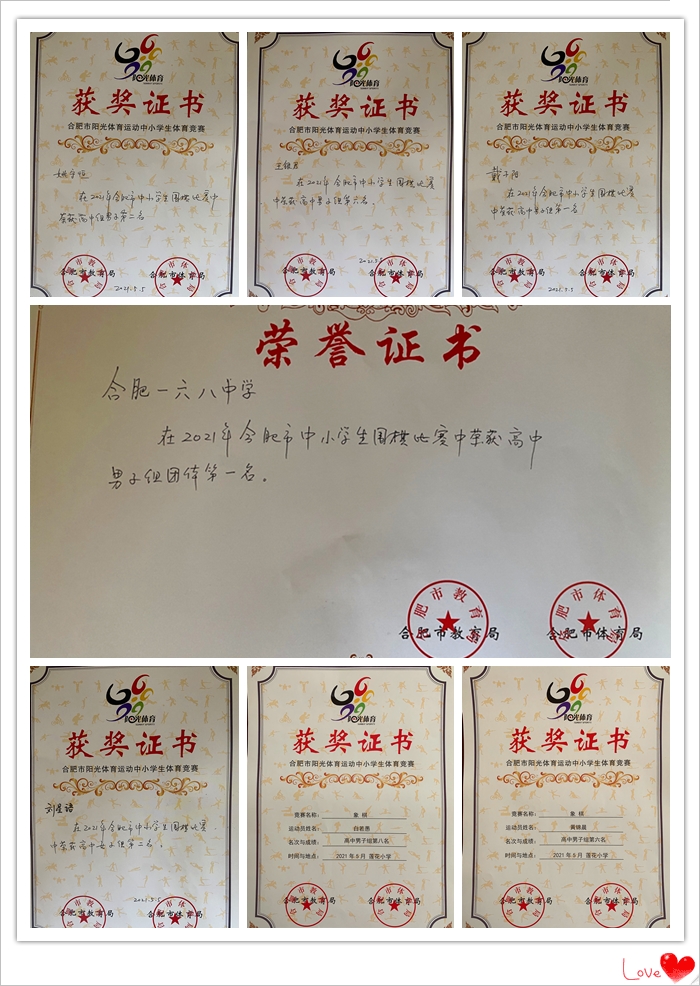 阳光体育
获奖证书
合肥市阳光体育运动中小学生体育竞赛
在2021年合肥市中小学生围棋比赛中
荣获高中组男子第二名
合肥市教育局
合肥市体育局
2021.5.5
阳光体育
获奖证书
合肥市阳光体育运动中小学生体育竞赛
在2021年合肥市中小学生围棋比赛
中荣获高中男子组第六名。
合肥市教育局
合肥市体育局
阳光体育
获奖证书
合肥市阳光体育运动中小学生体育竞赛
戴子阳
在2021年合肥市中小学生围棋比赛
中荣获高中男子组第一名
合肥市教育局
合肥市体育局
2021.5.5
荣誉证书
合肥一六八中学
在2021年合肥市中小学生围棋比赛中荣获高中
男子组团体第一名。
合肥市教育局
合肥市体育局
阳光体育
获奖证书
合肥市阳光体育运动中小学生体育竞赛
刘星语
在2021年合肥市中小学生围棋比赛
中荣获高中女子组第二名。
2021.5.5
合肥市教育局
合肥市体育局
阳光体育
获奖证书
合肥市阳光体育运动中小学生体育竞赛
竞赛名称: 象棋
运动员姓名: 白若愚
名次与成绩: 高中男子组第八名
时间与地点: 2021年5月 莲花小学
合肥市教育局
合肥市体育局
阳光体育
获奖证书
合肥市阳光体育运动中小学生体育竞赛
竞赛名称: 象棋
运动员姓名: 黄锦晨
名次与成绩: 高中男子组第六名
时间与地点: 2021年5月 莲花小学
合肥市教育局
合肥市体育局
Love